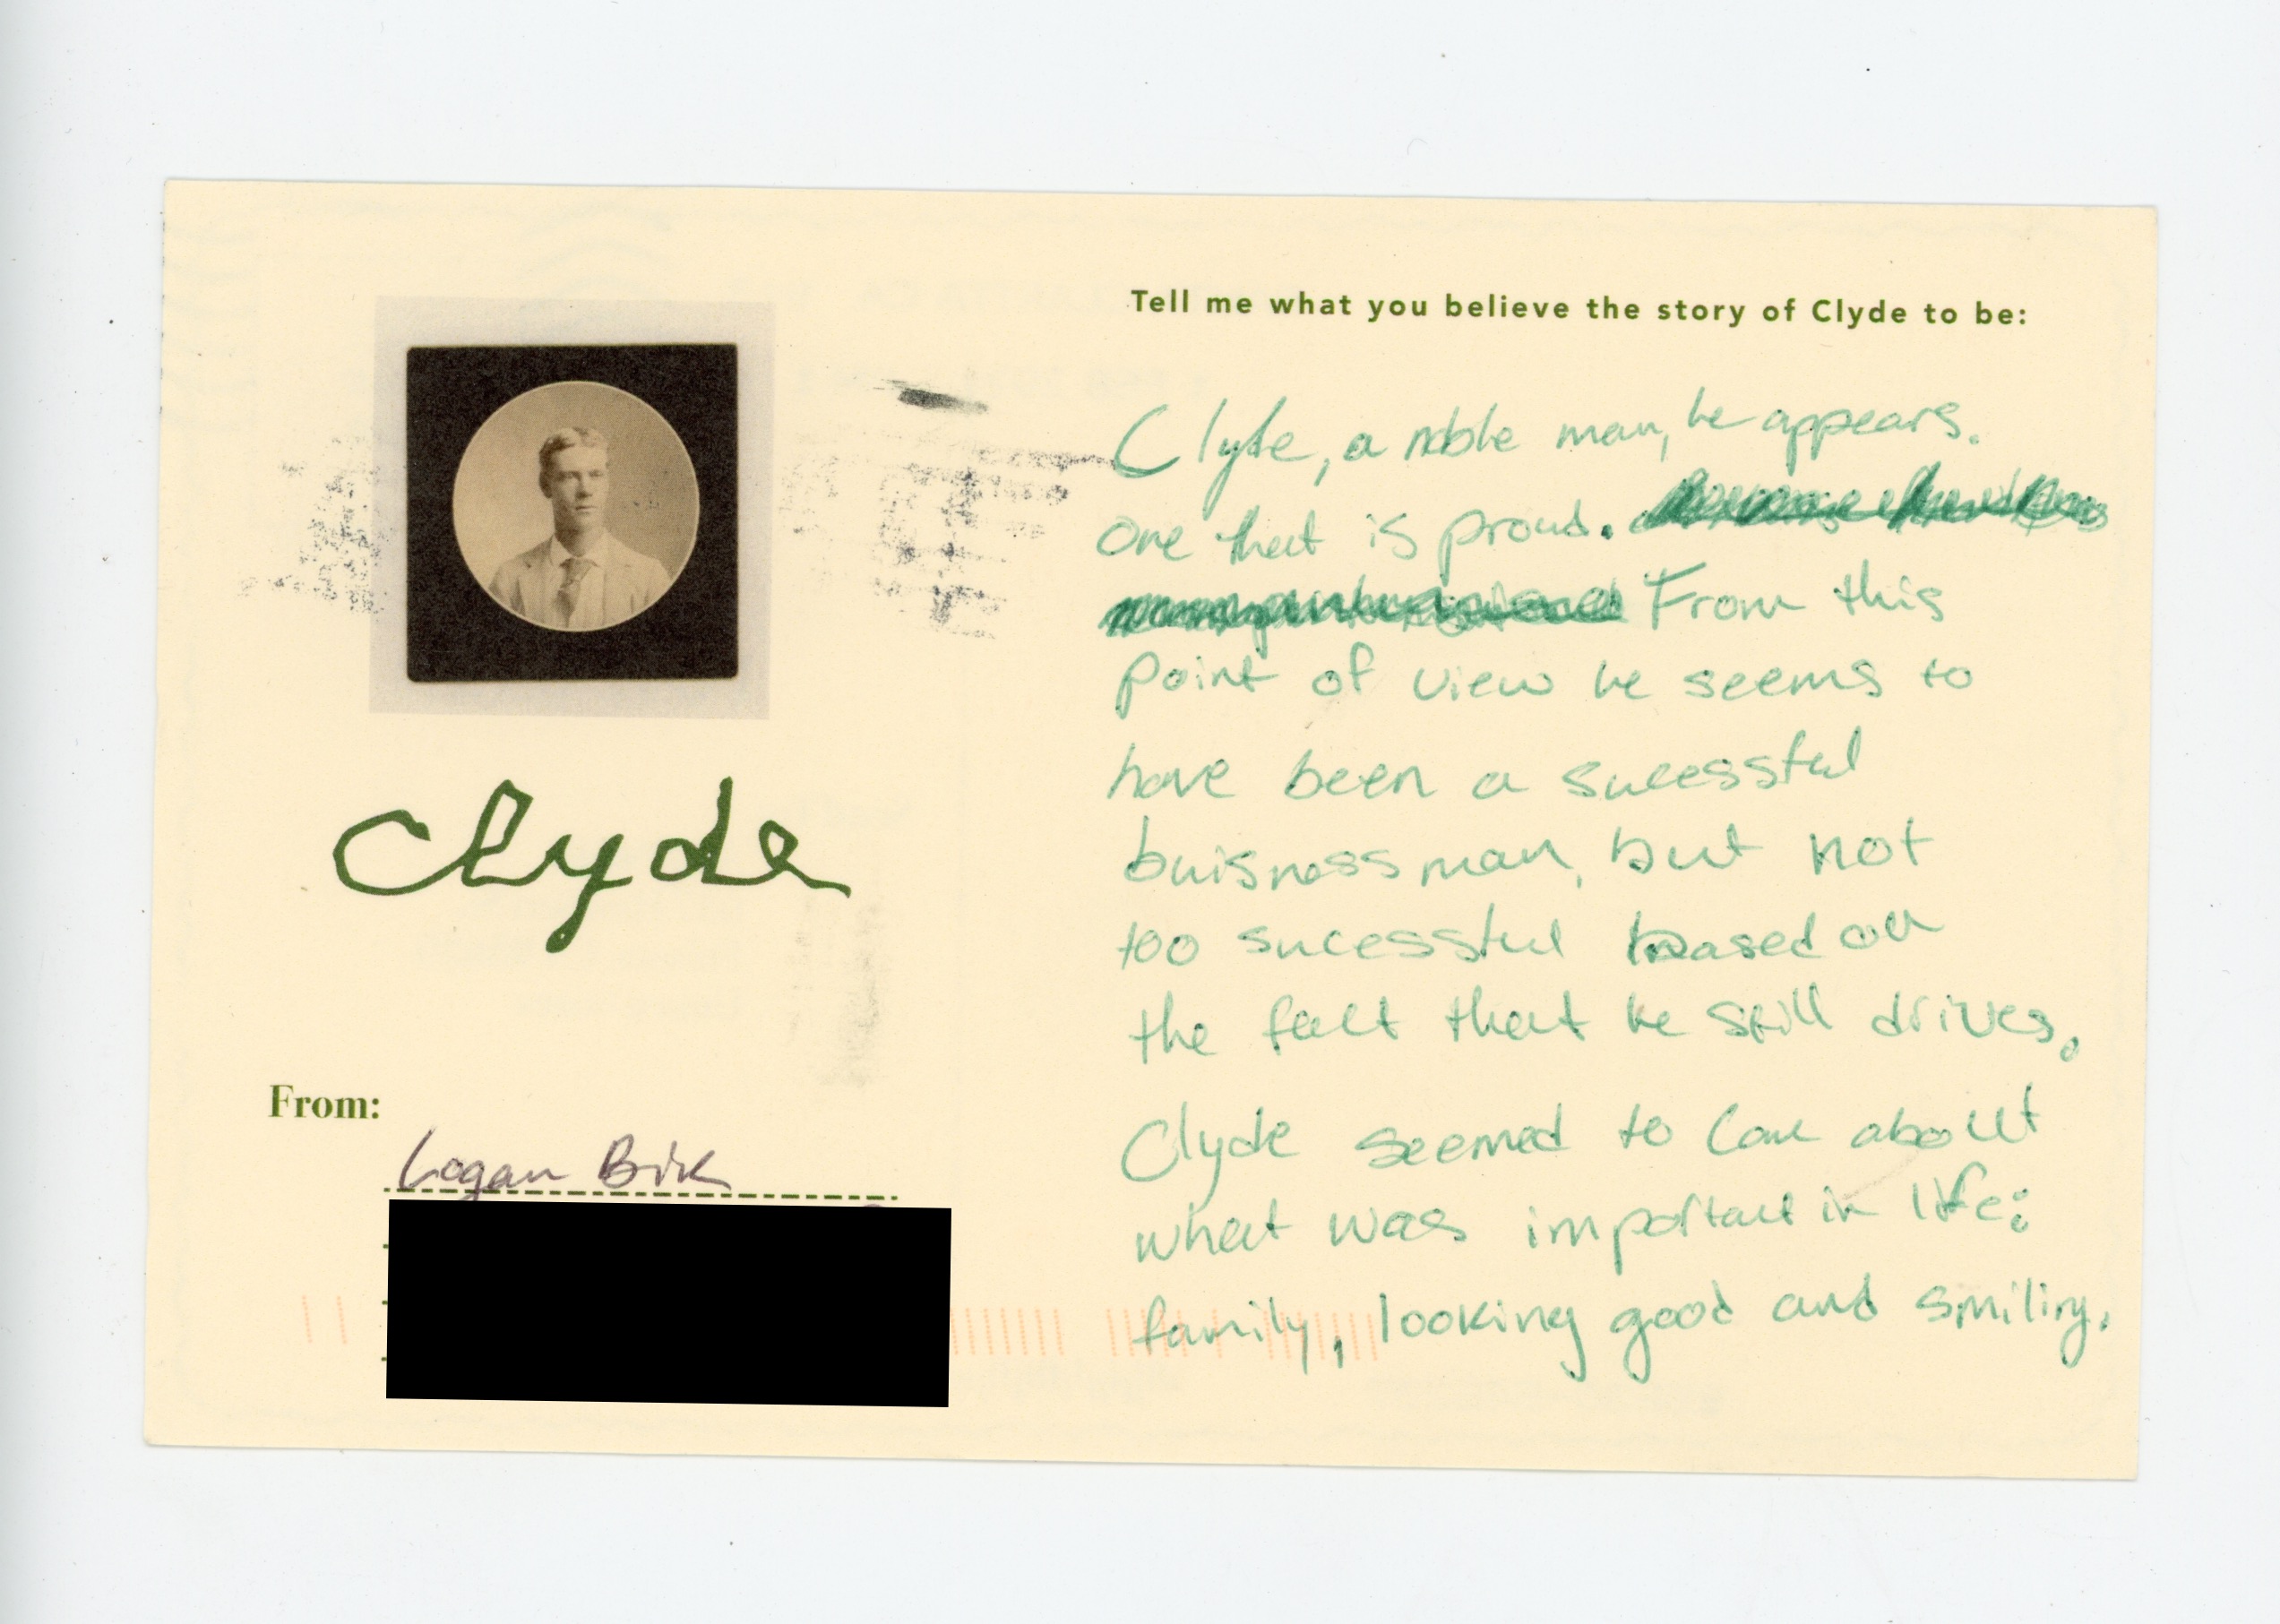 Tell me what you believe the story of Clyde to be:
Clyde, a noble man, he appears.
one that is proud.
From this
point of view he seems to
have been a sucessful
buisnessman, but not
too sucessful based on
the fact that he still drives.
Clyde seemed to care about
what was important in life:
family, looking good and smiling.
Clyde
From:
Logan Birk